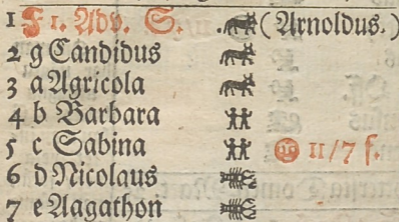 1 F 1. Adv. S. (Arnoldus.)
2 g Candidus
3 a Agricola
4 b Barbara
5 c Sabina 11/7 f.
6 d Nicolaus
7 e Aagathon